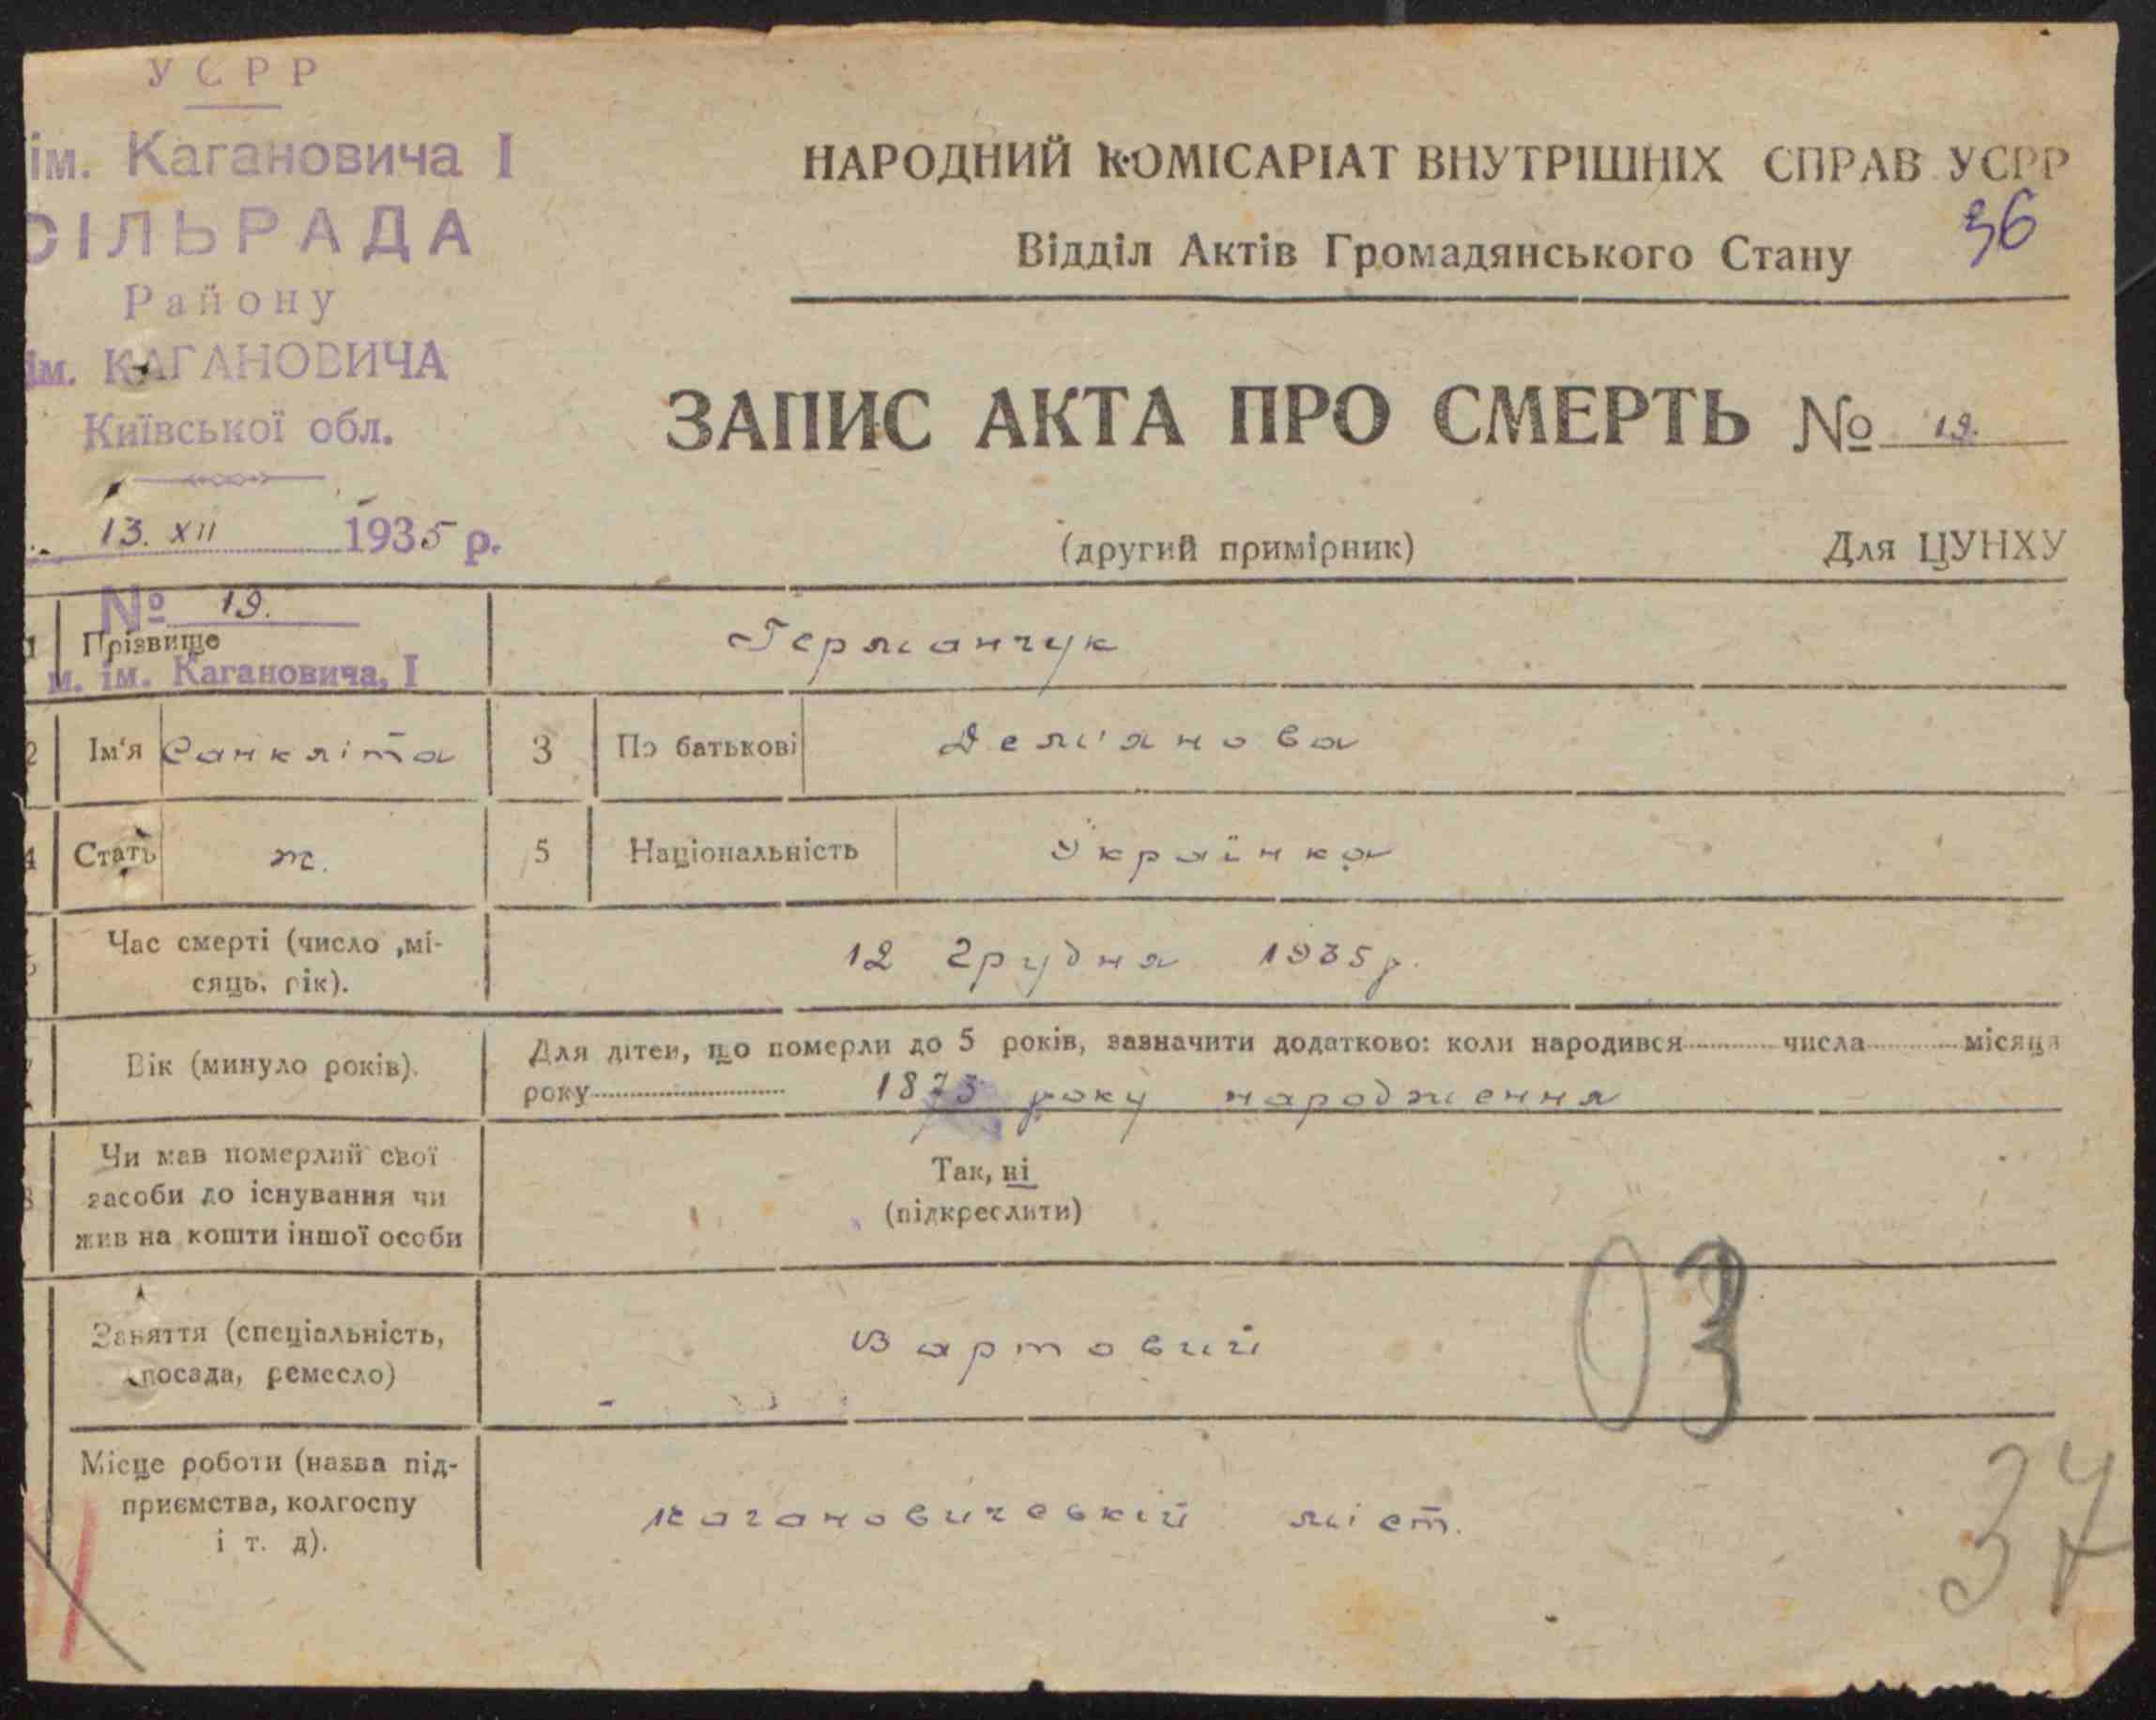 УСРР
ім. Кагановича І
СІЛЬРАДА
Району
ім. КАГАНОВИЧА
Київської обл.
13. XII 1935 р.
№ 19.
м. ім. Кагановича, І
НАРОДНИЙ КОМІСАРІАТ ВНУТРІШНІХ СПРАВ УСРР
36
Відділ Актів Громадянського Стану
ЗАПИС АКТА ПРО СМЕРТЬ № 19.
(другий примірник) Для ЦУНХУ
1 Прізвище Германчук
2 Ім'я Санкліта 3 По батькові Дем'янова
4 Стать ж. 5 Національність Українка
Час смерті (число ,мі-
сяць, рік).
12 грудня 1935 р.
Вік (минуло років).
Для дітей, що померли до 5 років, зазначити додатково: коли народився числа місяця
року 1873 року народження
8 Чи мав померлий свої
засоби до існування чи
жив на кошти іншої особи
Так, ні
(підкреслити)
Заняття (спеціальність,
посада, ремесло)
Вартовий
03
Місце роботи (назва під-
приємства, колгоспу
і т. д).
Кагановичеській міст.
37